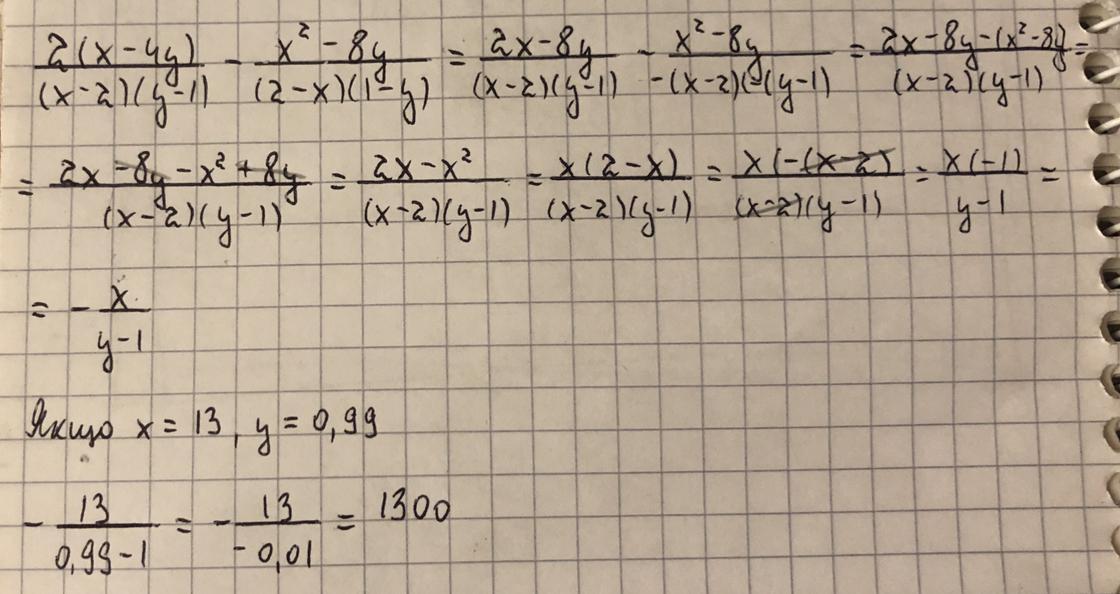 2(x-4y)/(x-2)(y-1) - x²-8y/(2-x)(1-y) = 2x-8y/(x-2)(y-1) - x²-8y/-(x-2)(-(y-1) = 2x-8y-(x²-8y)/(x-2)(y-1) =
= 2x-8y-x²+8y/(x-2)(y-1) = 2x-x²/(x-2)(y-1) = x(2-x)/(x-2)(y-1) = x(-(x-2)/(x-2)(y-1) = x(-1)/y-1 =
= - x/y-1
Якщо x = 13, y = 0,99
- 13/0,99-1 = - 13/-0,01 = 1300